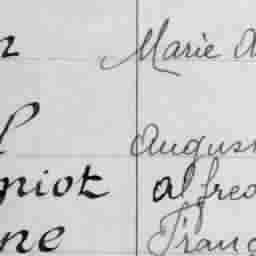 n Marie A
l Augus
niot Alfred
ne Franç